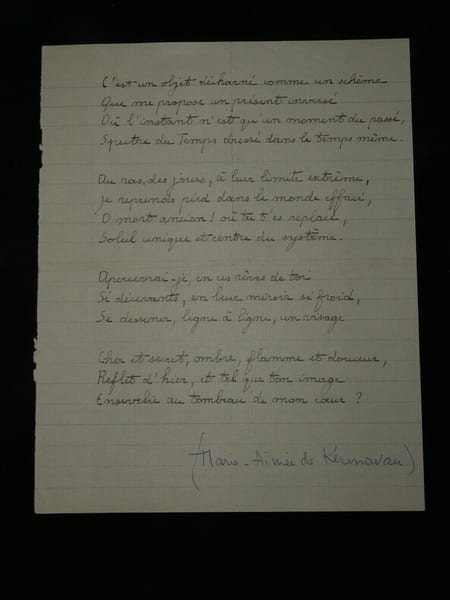 C'est un objet décharné comme un schème
Que me propose un présent inversé
Où l'instant n'est qu'un moment du passé,
Spectre du Temps dressé dans le temps même.
Au ras des jours, à leur limite extrême,
Je reprends pied dans le monde effacé,
O mort ancien ! où tu t'es replacé,
Soleil unique et centre du système.
Apercevrai-je, en ces rêves de toi
Si décevants, en leur miroir si froid,
Se dessiner, ligne à ligne, un visage
Cher et secret, ombre, flamme et douceur,
Reflet d'hier, et tel que ton image
Ensevelie au tombeau de mon cœur ?
(Marie-Aimée de Kermorvan)